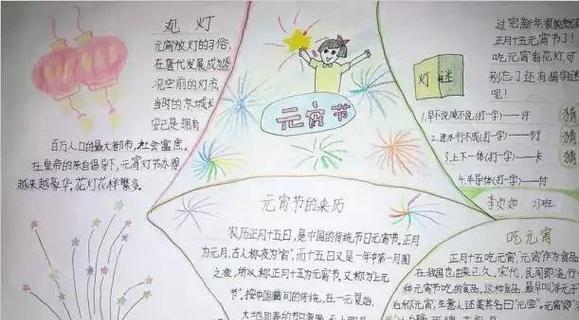 观灯
元宵放灯的习俗,
在唐代发展成
况空前的灯市,
当时的京城长
安已是拥有
百万人口的最大都市,社会富庶。
在皇帝的亲自倡导下,元宵灯节办得
越来越豪华,花灯花样繁多。
元宵节
过完新年很快就
正月十五元宵节了!
吃元宵看花灯可
别忘了还有猜字谜
呢!
灯谜
1.早不说晚不说(打一字)——许
2.进水行不成(打一字)——
3.上下一体(打一字)——卡
4.半导体(打一字)——付
猜
猜
猜
李
元宵节的来历
农历正月十五日,是中国的传统节日元宵节。正月
为元月,古人称夜为"宵",而十五日又是一年中第一个月圆
之夜,所以称正月十五为元宵节。又称为上元
节"。按中国民间的传统,在一元复始,
吃元宵
正月十五吃元宵,"元宵"作为食品
在我国也由来已久。宋代,民间即流行一
种元宵节吃的食品。这种食品,最早叫浮元子
后称元宵,生意人还美其名曰"元宝"。